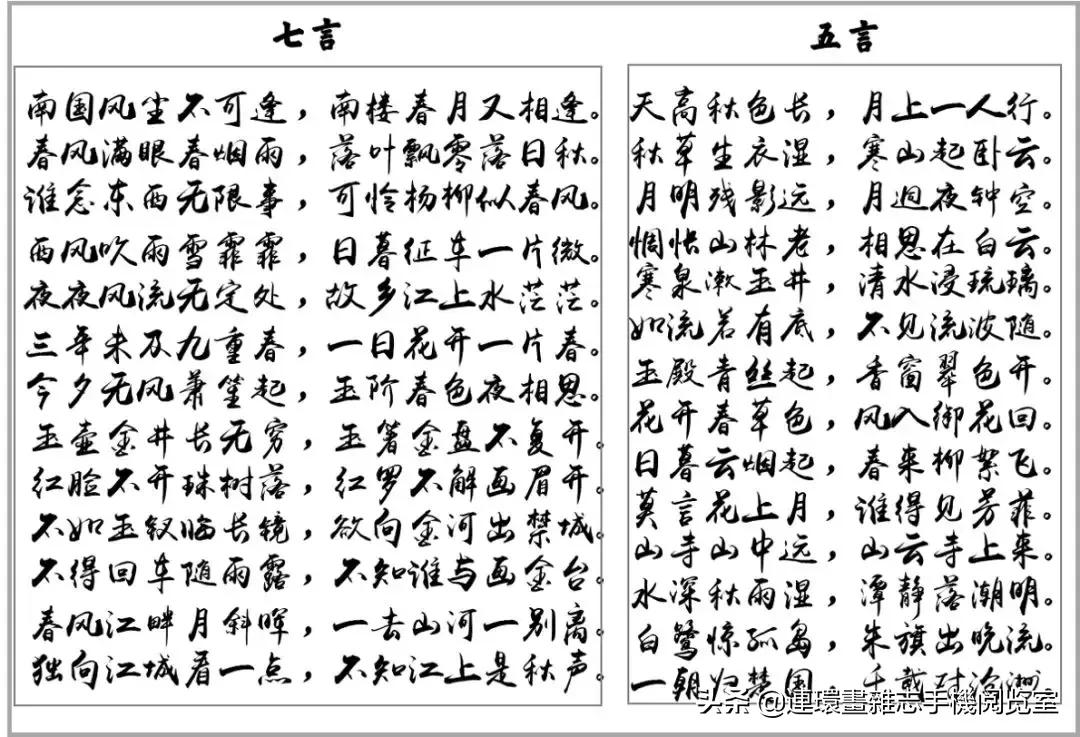 七言
南国风尘不可逢，南楼春月又相逢。
春风满眼春烟雨，落叶飘零落日秋。
谁念东西无限事，可怜杨柳似春风。
西风吹雨雪霏霏，日暮征车一片微。
夜夜风流无定处，故乡江上水茫茫。
三年未及九重春，一日花开一片春。
今夕无风萧笙起，玉阶春色夜相思。
玉壶金井长无穷，玉箸金盘不复开。
红脸不开珠树落，红罗不解画眉开。
不如玉钗临长镜，欲向金河出禁城。
不得回车随雨露，不知谁与画金台。
春风江畔月斜晖，一去山河一别离。
独向江城看一点，不知江上是秋声。
五言
天高秋色长，月上一人行。
秋草生衣湿，寒山起卧云。
月明残影远，月迥夜钟空。
惆怅山林老，相思在白云。
寒泉漱玉井，清水浸琉璃。
如流若有底，不见流波随。
玉殿青丝起，香窗翠色开。
花开春草色，风入御花回。
日暮云烟起，春来柳絮飞。
莫言花上月，谁得见芳菲。
山寺山中远，山云寺上来。
水深秋雨湿，潭静落潮明。
白鹭惊孤岛，朱旗出晚流。
一朝归禁国，千载对沧洲
头条 @連環畫雜志手機閱览室